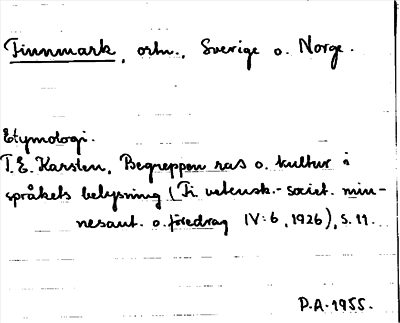 Finnmark, ortn., Sverige o. Norge.
Etymologi.
T.E. Karsten, Begreppen ras o. kultur i
språkets belysning (Fi vetensk.-societ. min-
nesant. o. föredrag IV:6, 1926), s. 11.
P.A. 1955.